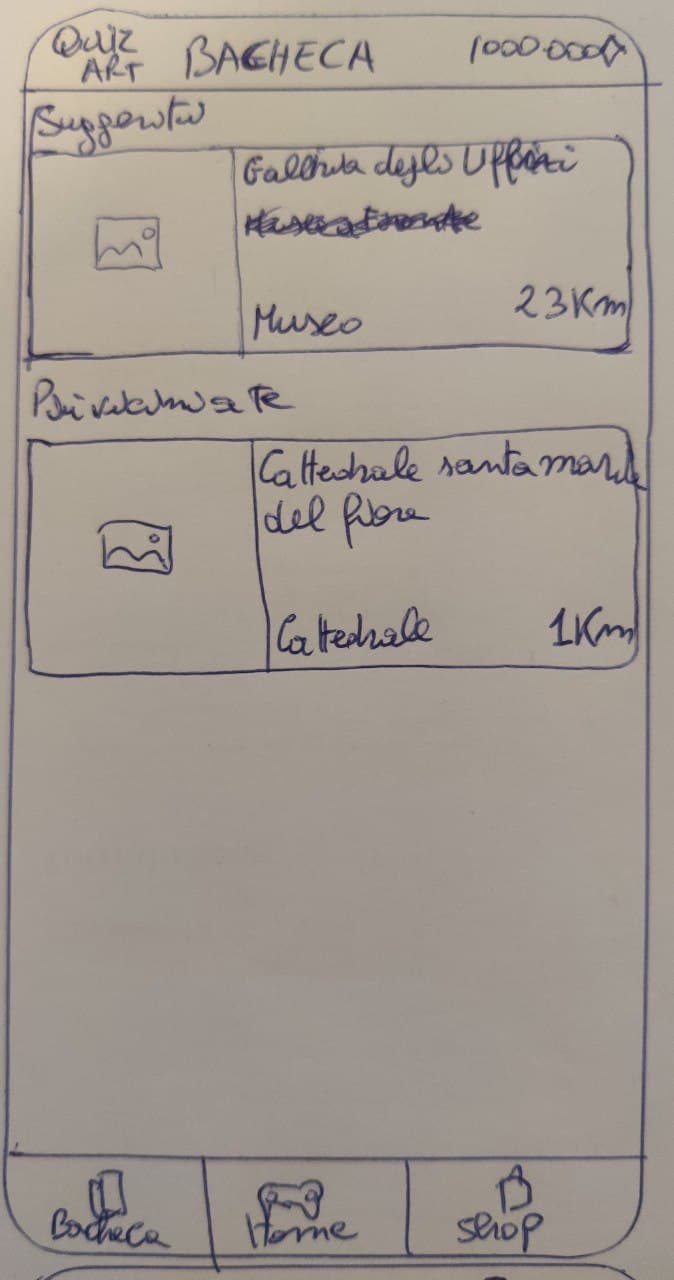 Quiz
ART
BACHECA
1000.000
Suggeriti
Galleria degli Uffizi
Museo
23Km
Più vicini a te
Cattedrale santa maria
del fiore
Cattedrale
1Km
Bacheca
Home
shop